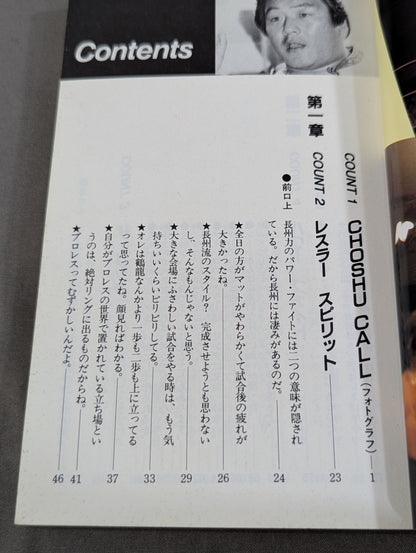 Contents
COUNT 1 CHOSHU CALL(フォトグラフ)――1
第一章 COUNT 2 レスラー スピリット――23
●前口上
長州力のパワー・ファイトには二つの意味が隠され
ている。だから長州には凄みがあるのだ。――24
★全日の方がマットがやわらかくて試合後の疲れが
大きかったね。――26
★長州流のスタイル? 完成させようとも思わない
し、そんなもんじゃないと思う。――29
★大きな会場にふさわしい試合をやる時は、もう気
持ちいいくらいピリピリしてる。――33
★オレは鶴龍なんかより一歩も二歩も上に立ってる
って思ってたね。顔見ればわかる。――37
★自分がプロレスの世界で置かれている立ち場とい
うのは、絶対リングに出るものだからね。――41
★プロレスってむずかしいんだよ。――46